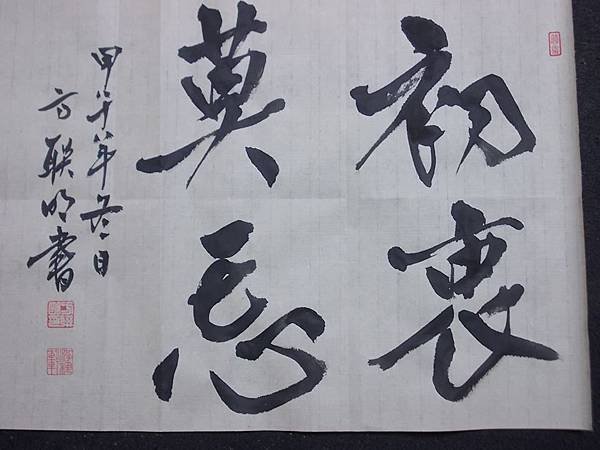 初衷
莫忘
甲午年冬日
方联明書